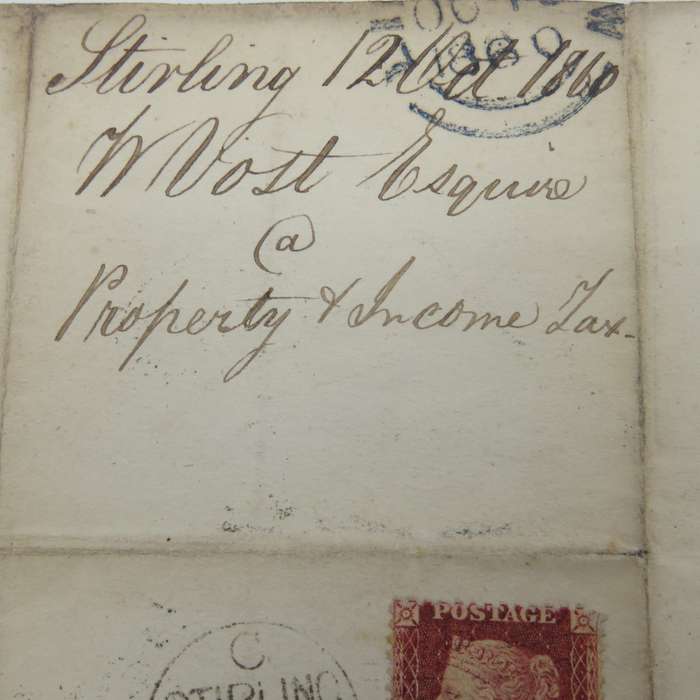 OC
1860
Stirling 12 Oct 1860
W Vost Esquire
@
Property & Income Tax
POSTAGE
C
STIRLING